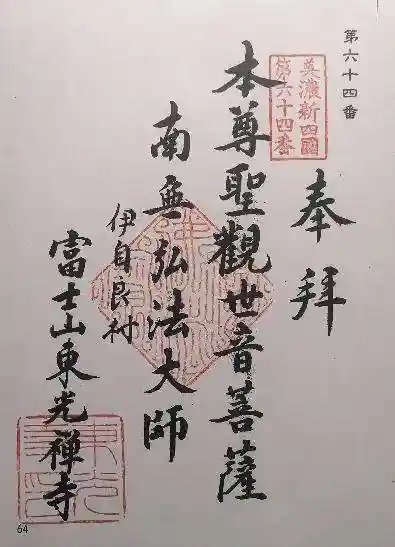 第六十四番
美濃新四國
第六十四番
奉拜
本尊聖觀世音菩薩
南無弘法大師
伊自良村
富士山東光禅寺
64